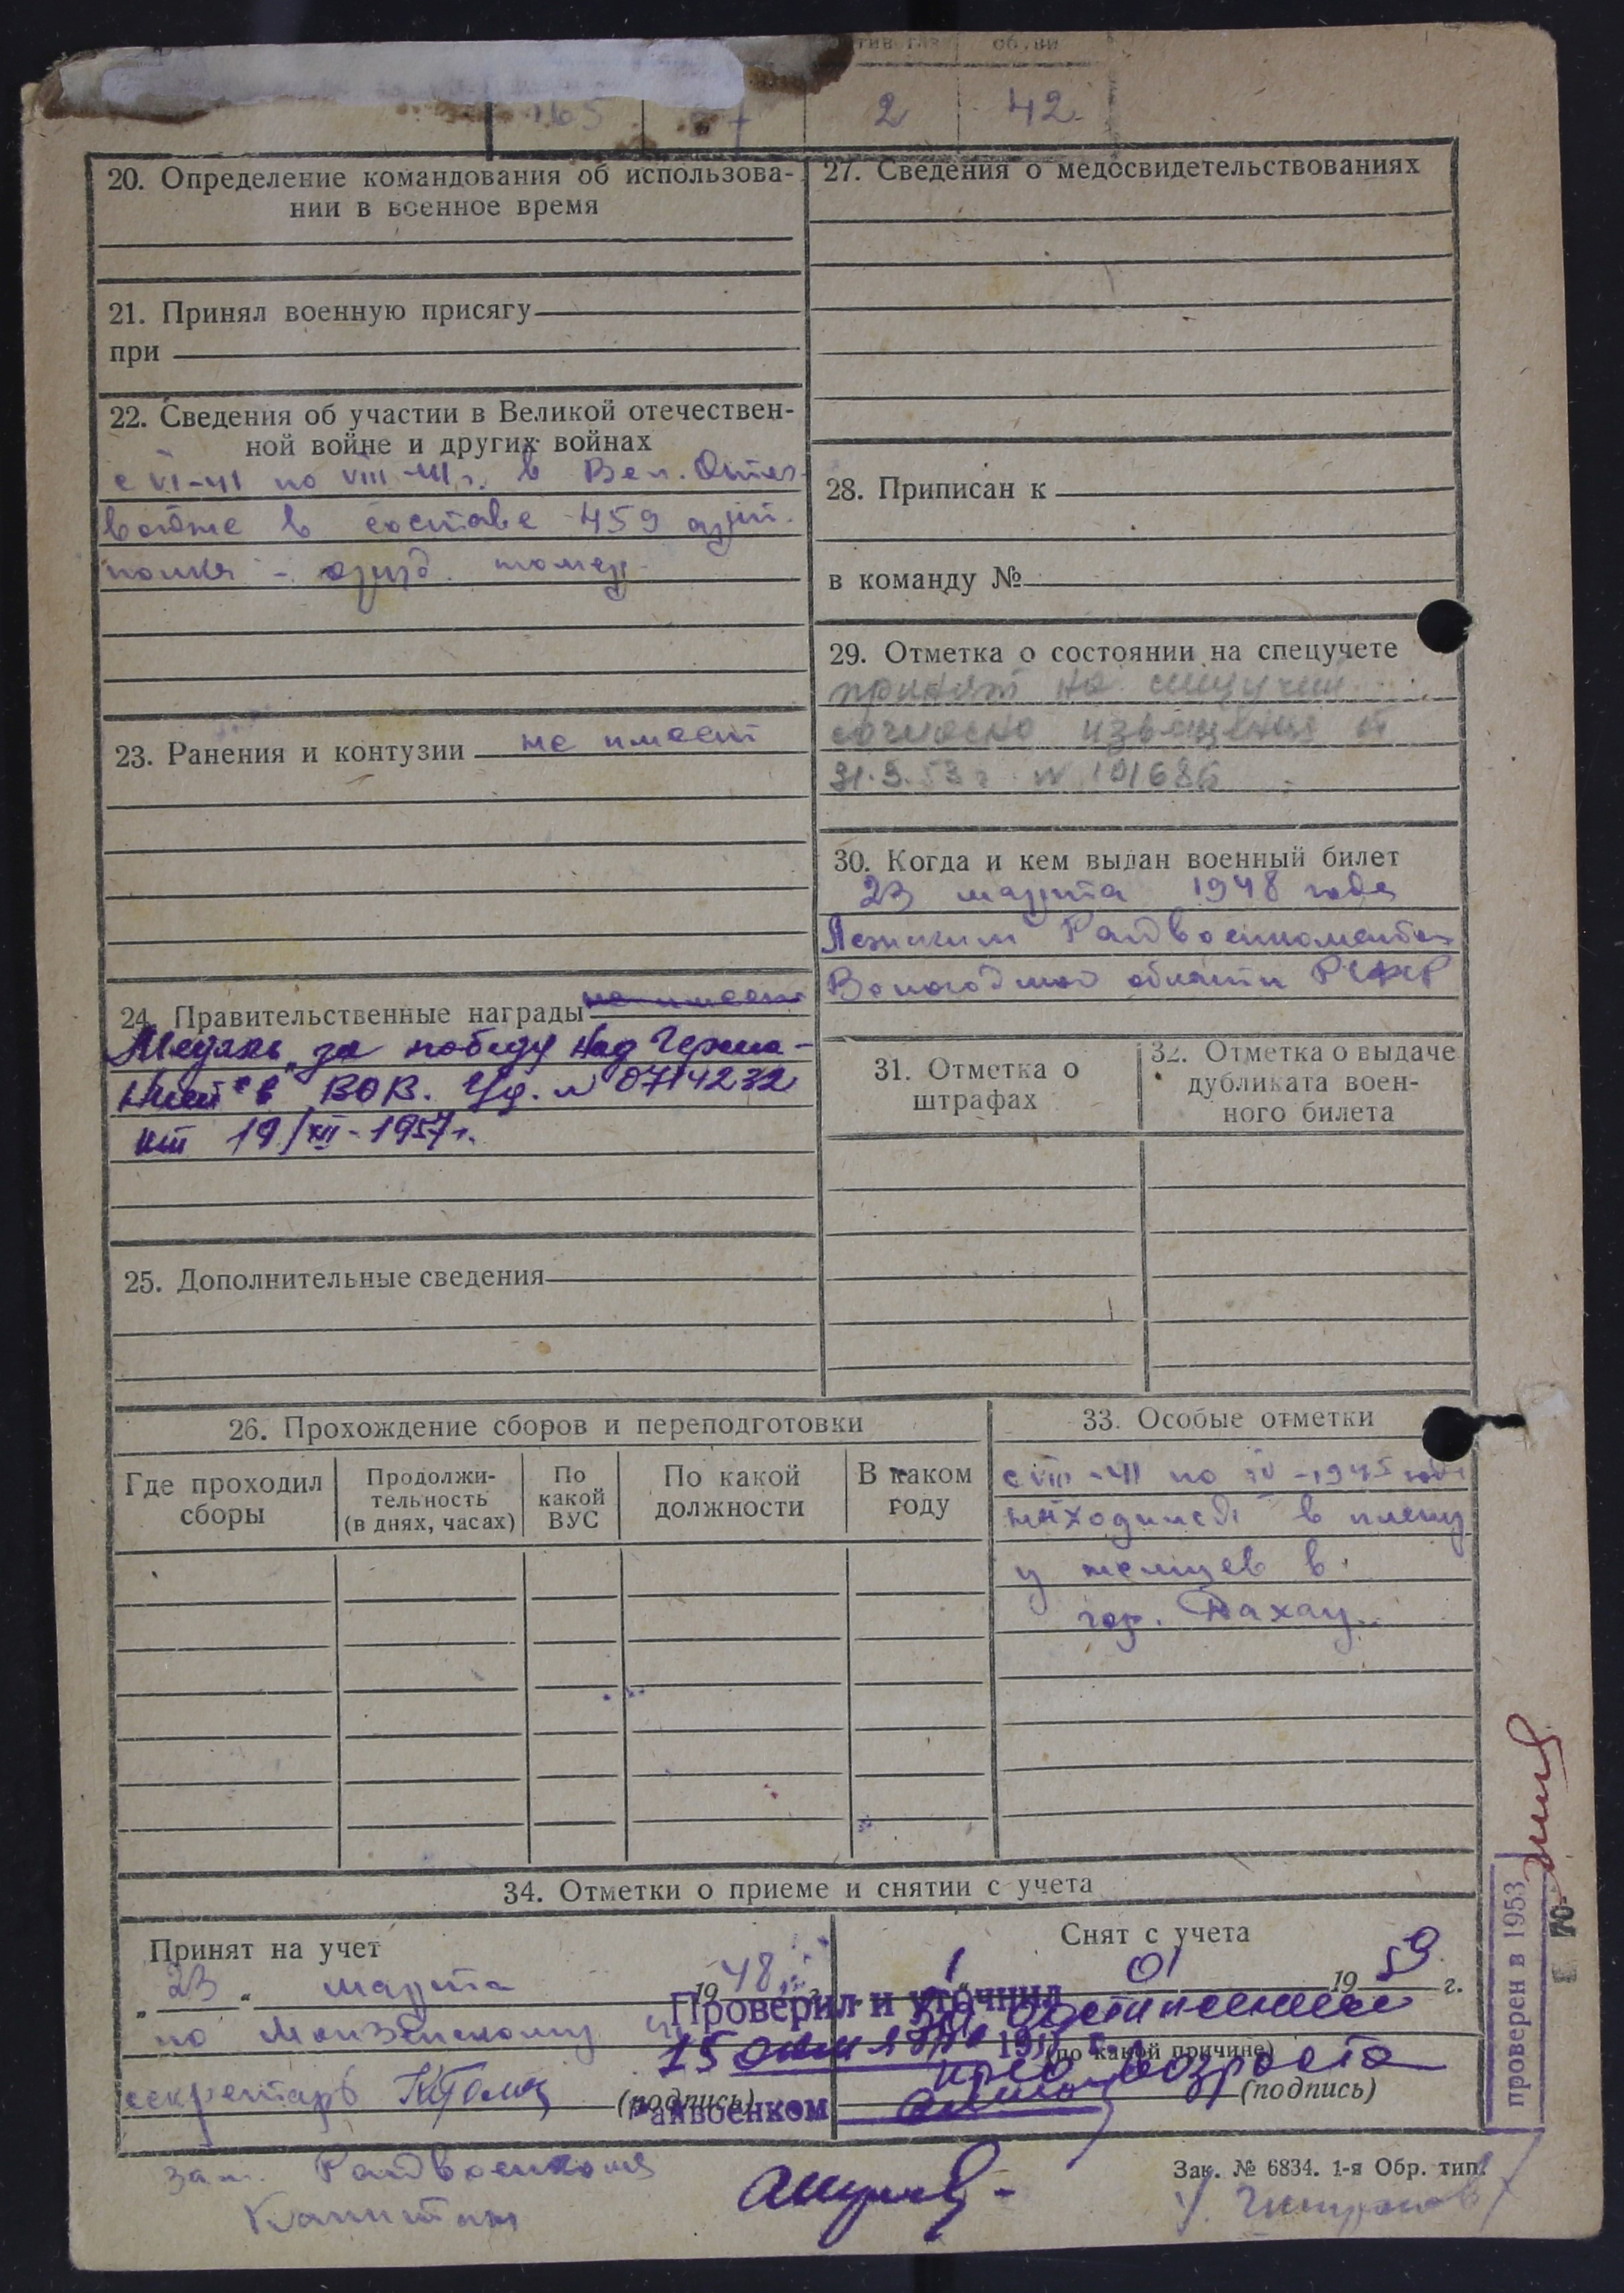 2 42
20. Определение командования об использова-
нии в военное время
21. Принял военную присягу
при
22. Сведения об участии в Великой отечествен-
ной войне и других войнах
с VI-41 по VIII-41 г. в Вел. Отеч.
войне в составе 459 арт.
полка - оруд. номер
23. Ранения и контузии не имеет
24. Правительственные награды не имеет
Медаль „за победу над Герма-
нией" в ВОВ. Уд. № 0714232
от 19/XII-1957 г.
25. Дополнительные сведения
27. Сведения о медосвидетельствованиях
28. Приписан к
в команду №
29. Отметка о состоянии на спецучете
принят на спецучет
согласно извещения от
31.3.53 г. № 101686
30. Когда и кем выдан военный билет
23 марта 1948 года
Райвоенкоматом
Вологодской области РСФСР
31. Отметка о
штрафах
32. Отметка о выдаче
дубликата воен-
ного билета
26. Прохождение сборов и переподготовки
Где проходил
сборы
Продолжи-
тельность
(в днях, часах)
По
какой
ВУС
По какой
должности
В каком
году
33. Особые отметки
с VIII-41 по IV-1945 года
находился в плену
у немцев в
гор. Дахау.
34. Отметки о приеме и снятии с учета
Принят на учет
„23" марта 1948 г.
по
секретарь
(подпись)
Снят с учета
1 01 1959 г.
по достижении
(по какой причине)
пред. возраста
(подпись)
Проверил и уточнил
15 октября 195
Райвоенком
зам. Райвоенкома
Капитан
Зак. № 6834. 1-я Обр. тип.
проверен в 1953
70-